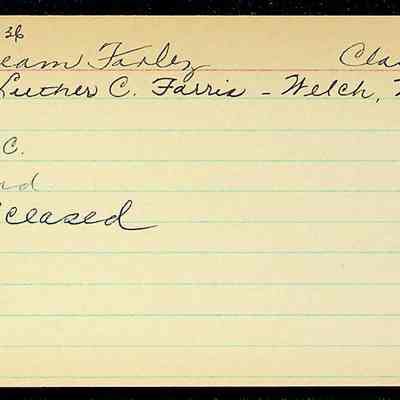 36
eam Farley Cla
Luther C. Farris - Welch,
C.
nd
ceased